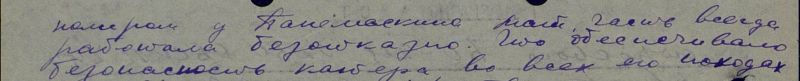 у Панёмаскина мат. часть всегда
работала безотказно. Что обеспечивало
безопасность катера, во всех его походах